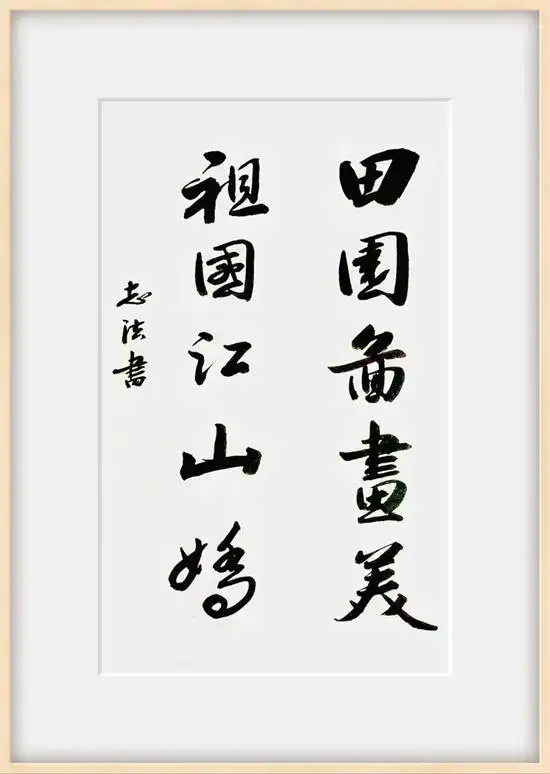 田園啚畫美
祖國江山嬌
志法書